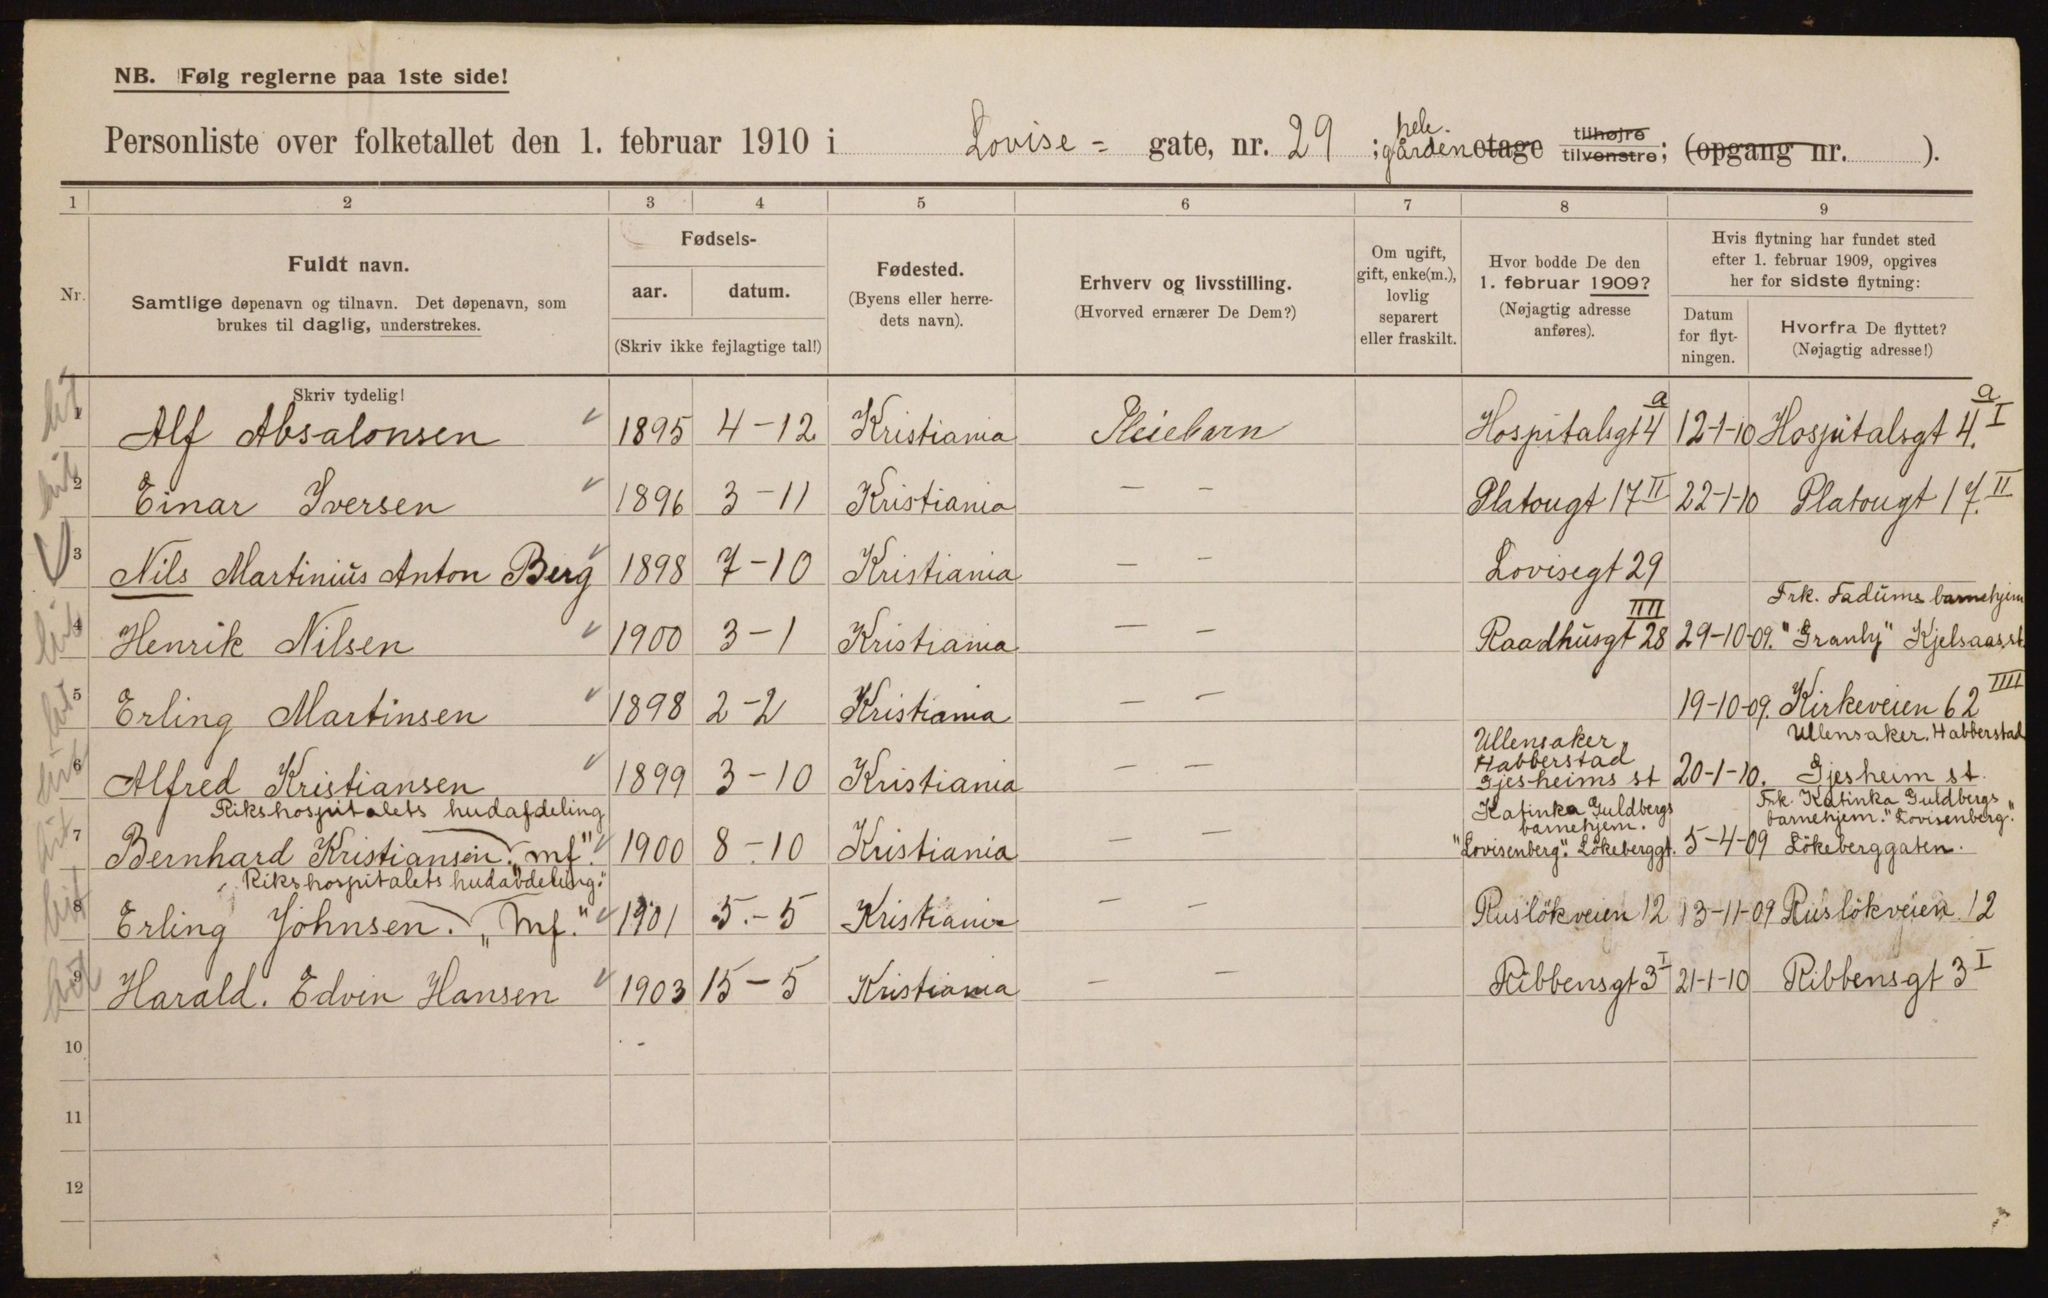 NB. Følg reglerne paa 1ste side!
Personliste over folketallet den 1. februar 1910 i Lovise = gate, nr. 29 ; hele gården etage tilhøjre tilvenstre; (opgang nr. ).
1 2 3 4 5 6 7 8 9
Nr.
Fuldt navn.
Samtlige døpenavn og tilnavn. Det døpenavn, som
brukes til daglig, understrekes.
Fødsels-
aar. datum.
(Skriv ikke fejlagtige tal!)
Fødested.
(Byens eller herre-
dets navn).
Erhverv og livsstilling.
(Hvorved ernærer De Dem?)
Om ugift,
gift, enke(m.),
lovlig
separert
eller fraskilt.
Hvor bodde De den
1. februar 1909?
(Nøjagtig adresse
anføres).
Hvis flytning har fundet sted
efter 1. februar 1909, opgives
her for sidste flytning:
Datum
for flyt-
ningen.
Hvorfra De flyttet?
(Nøjagtig adresse!)
Skriv tydelig!
1 Alf Absalonsen 1895 4-12 Kristiania Pleiebarn Hospitalsgt 4 a 12-1-10 Hospitalsgt 4. a I
2 Einar Iversen 1896 3-11 Kristiania — — Platougt 17 II 22-1-10 Platougt 17. II
3 Nils Martinius Anton Berg 1898 7-10 Kristiania — — Lovisegt 29
Frk. Fadums barnehjem
4 Henrik Nilsen 1900 3-1 Kristiania — — Raadhusgt 28 IIII 29-10-09. "Granly" Kjelsaas st.
5 Erling Martinsen 1898 2-2 Kristiania — — 19-10-09. Kirkeveien 62 IIII
Ullensaker, Ullensaker. Habberstad
Habberstad
6 Alfred Kristiansen 1899 3-10 Kristiania — — Gjesheims st 20-1-10. Gjesheim st.
Rikshospitalets hudafdeling Katinka Guldbergs Frk. Katinka Guldbergs
barnehjem. barnehjem. "Lovisenberg."
7 Bernhard Kristiansen. "mf". 1900 8-10 Kristiania — — "Lovisenberg". Lökeberggt. 5-4-09 Lökeberggaten.
Rikshospitalets hudavdeling."
8 Erling Johnsen. "mf." 1901 5.-5 Kristiania — — Rusløkveien 12 13-11-09 Rusløkveien 12
9 Harald. Edvin Hansen 1903 15-5 Kristiania — — Ribbensgt 3 I 21-1-10 Ribbensgt 3 I
10
11
12